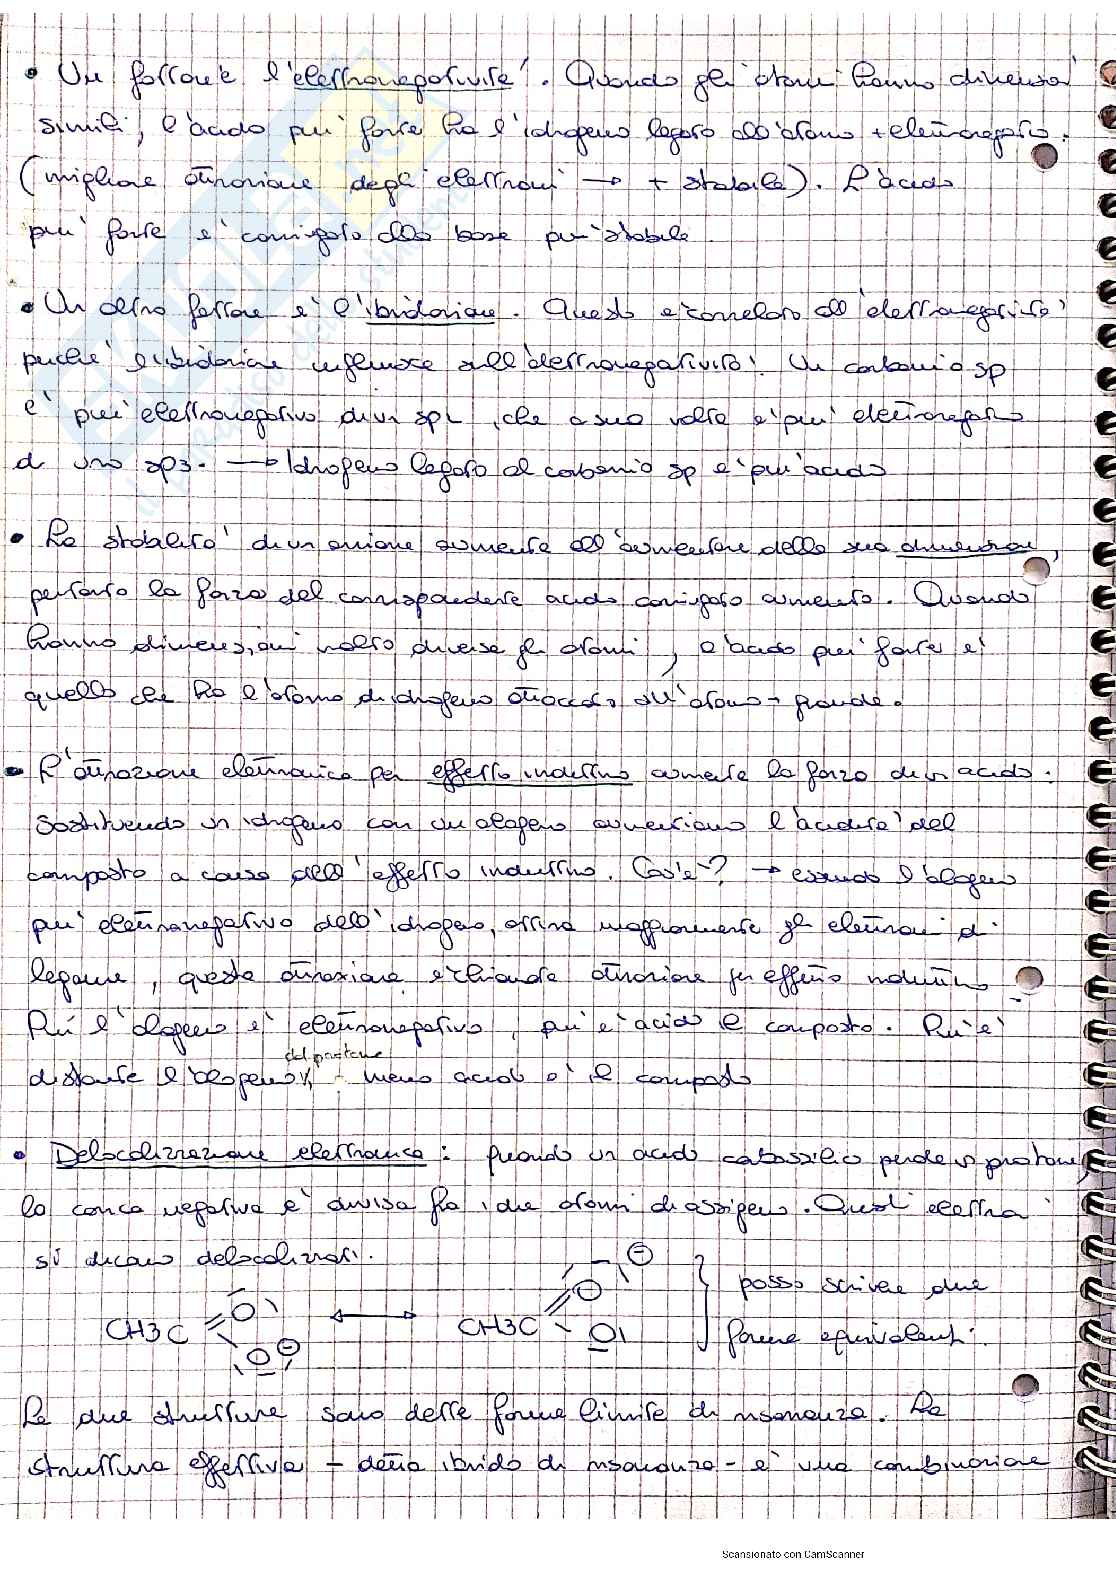 • Un fattore è l'elettronegatività. Quando gli atomi hanno dimensioni
simili, l'acido più forte ha l'idrogeno legato all'atomo + elettronegativo.
(migliore attrazione degli elettroni → + stabile). L'acido
più forte è coniugato alla base più stabile
• Un altro fattore è l'ibridazione. Questo è correlato all'elettronegatività
perché l'ibridazione influisce sull'elettronegatività. Un carbonio sp
è più elettronegativo di un sp2, che a sua volta è più elettronegativo
di uno sp3. → Idrogeno legato al carbonio sp è più acido
• La stabilità di un anione aumenta all'aumentare della sua dimensione,
pertanto la forza del corrispondente acido coniugato aumenta. Quando
hanno dimensioni molto diverse gli atomi, l'acido più forte è
quello che ha l'atomo di idrogeno attaccato all'atomo + grande.
• L'attrazione elettronica per effetto induttivo aumenta la forza di un acido:
sostituendo un idrogeno con un alogeno aumentiamo l'acidità del
composto a causa dell'effetto induttivo. Cos'è? → essendo l'alogeno
più elettronegativo dell'idrogeno, attira maggiormente gli elettroni di
legame, questa attrazione è chiamata attrazione per effetto induttivo
Più l'alogeno è elettronegativo, più è acido il composto. Più è
distante l'alogeno dal protone, meno acido è il composto
• Delocalizzazione elettronica: quando un acido carbossilico perde un protone,
la carica negativa è divisa fra i due atomi di ossigeno. Questi elettroni
si dicono delocalizzati.
CH3C O O ⊖ ↔ CH3C O ⊖ O
posso scrivere due
forme equivalenti.
Le due strutture sono dette forme limite di risonanza. La
struttura effettiva - detta ibrido di risonanza - è una combinazione
Scansionato con CamScanner